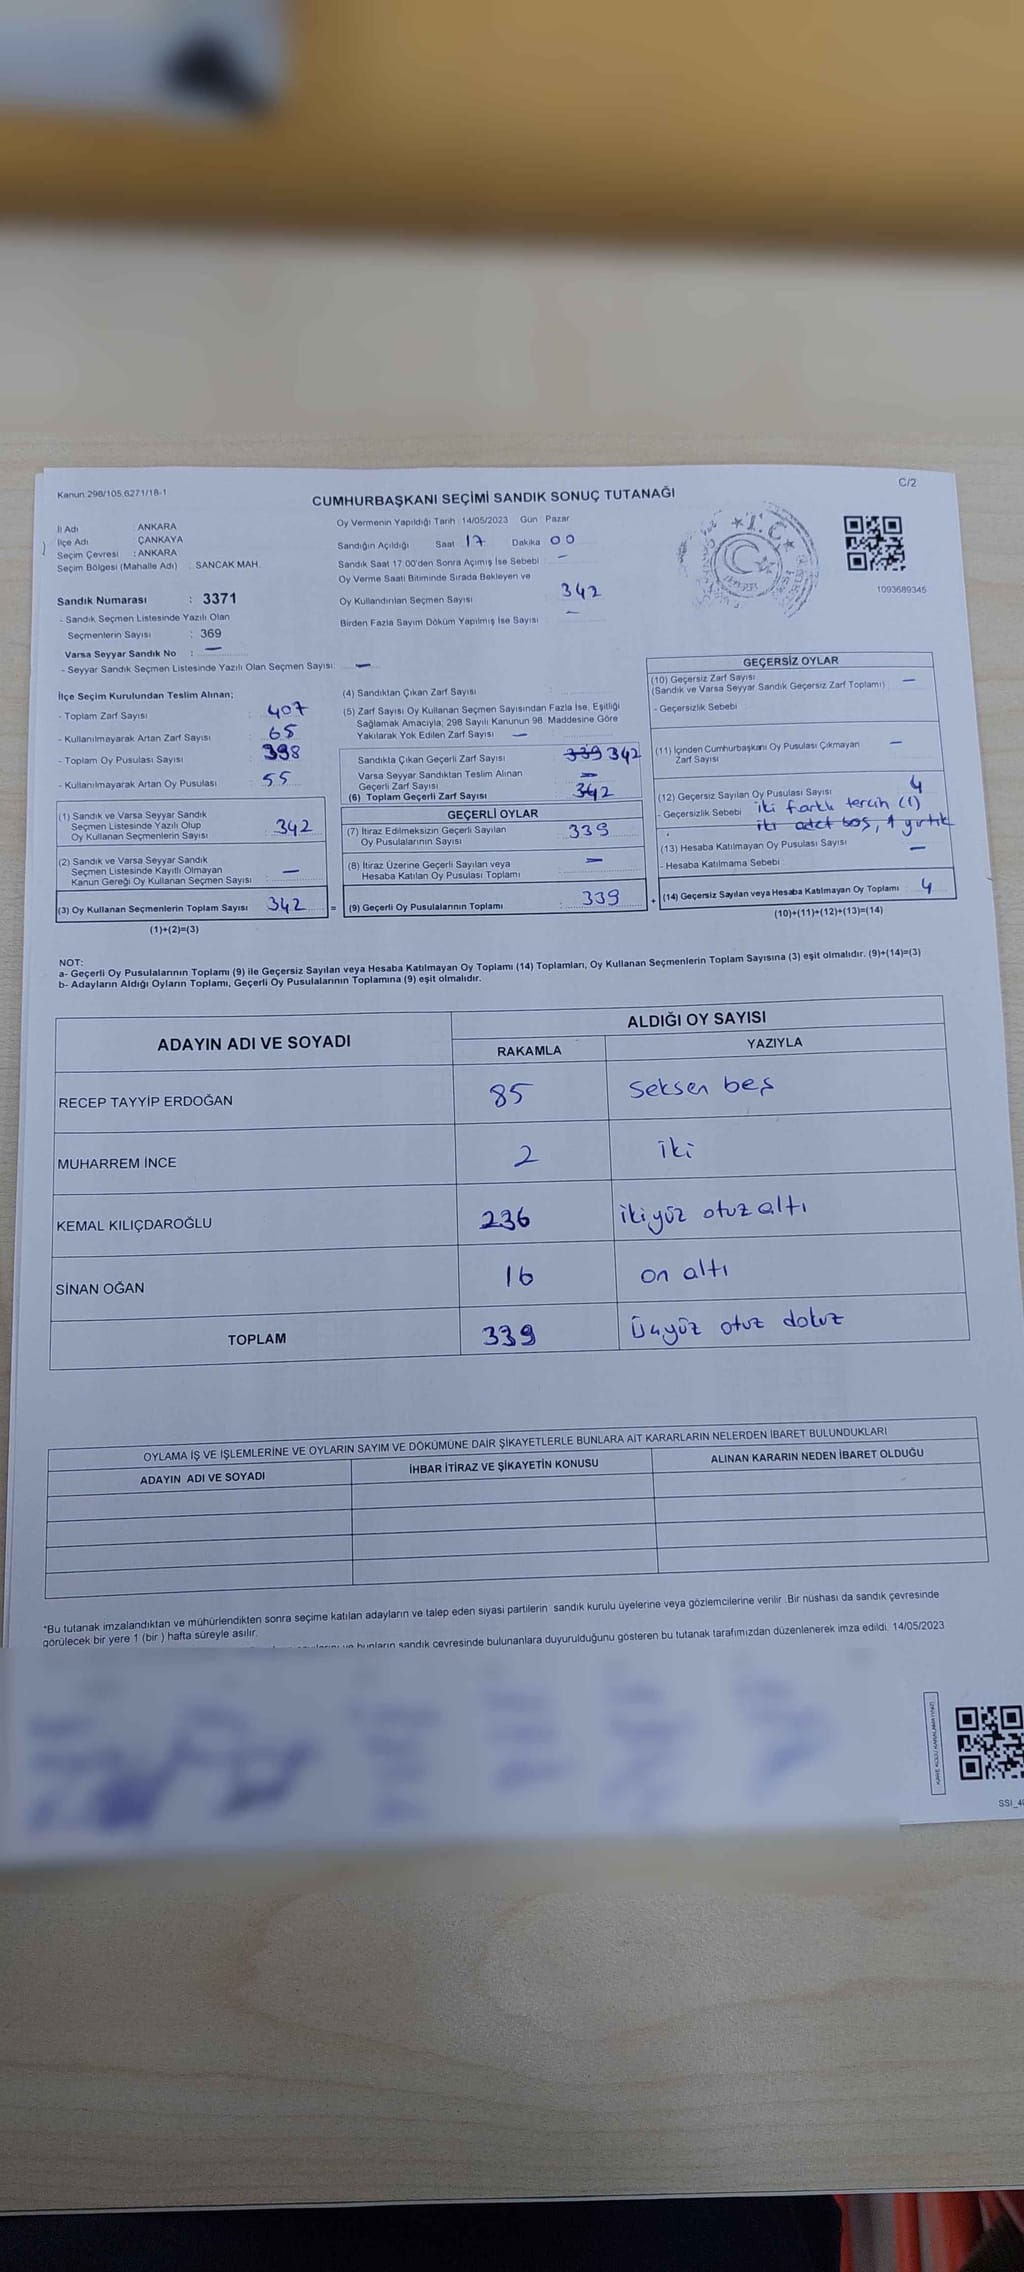 Kanun:298/105,6271/18-1
C/2
CUMHURBAŞKANI SEÇİMİ SANDIK SONUÇ TUTANAĞI
İl Adı : ANKARA
İlçe Adı : ÇANKAYA
Seçim Çevresi : ANKARA
Seçim Bölgesi (Mahalle Adı) : SANCAK MAH.
Sandık Numarası : 3371
- Sandık Seçmen Listesinde Yazılı Olan
Seçmenlerin Sayısı : 369
Varsa Seyyar Sandık No : —
- Seyyar Sandık Seçmen Listesinde Yazılı Olan Seçmen Sayısı: —
Oy Vermenin Yapıldığı Tarih : 14/05/2023 Gün : Pazar
Sandığın Açıldığı Saat 17 Dakika 00
Sandık Saat 17:00'den Sonra Açımış İse Sebebi : —
Oy Verme Saati Bitiminde Sırada Bekleyen ve
Oy Kullandırılan Seçmen Sayısı 342
Birden Fazla Sayım Döküm Yapılmış İse Sayısı : —
T.C.
1093689345
İlçe Seçim Kurulundan Teslim Alınan;
- Toplam Zarf Sayısı : 407
- Kullanılmayarak Artan Zarf Sayısı : 65
- Toplam Oy Pusulası Sayısı : 398
- Kullanılmayarak Artan Oy Pusulası : 55
(1) Sandık ve Varsa Seyyar Sandık
Seçmen Listesinde Yazılı Olup
Oy Kullanan Seçmenlerin Sayısı : 342
(2) Sandık ve Varsa Seyyar Sandık
Seçmen Listesinde Kayıtlı Olmayan
Kanun Gereği Oy Kullanan Seçmen Sayısı : —
(3) Oy Kullanan Seçmenlerin Toplam Sayısı 342
(1)+(2)=(3)
(4) Sandıktan Çıkan Zarf Sayısı
(5) Zarf Sayısı Oy Kullanan Seçmen Sayısından Fazla İse, Eşitliği
Sağlamak Amacıyla, 298 Sayılı Kanunun 98. Maddesine Göre
Yakılarak Yok Edilen Zarf Sayısı : —
Sandıkta Çıkan Geçerli Zarf Sayısı : 339 342
Varsa Seyyar Sandıktan Teslim Alınan
Geçerli Zarf Sayısı : —
(6) Toplam Geçerli Zarf Sayısı : 342
GEÇERLİ OYLAR
(7) İtiraz Edilmeksizin Geçerli Sayılan
Oy Pusulalarının Sayısı : 339
(8) İtiraz Üzerine Geçerli Sayılan veya
Hesaba Katılan Oy Pusulası Toplamı : —
= (9) Geçerli Oy Pusulalarının Toplamı : 339
GEÇERSİZ OYLAR
(10) Geçersiz Zarf Sayısı : —
(Sandık ve Varsa Seyyar Sandık Geçersiz Zarf Toplamı)
- Geçersizlik Sebebi
(11) İçinden Cumhurbaşkanı Oy Pusulası Çıkmayan
Zarf Sayısı —
(12) Geçersiz Sayılan Oy Pusulası Sayısı : 4
- Geçersizlik Sebebi : iki farklı tercih (1)
iki adet boş, 1 yırtık
(13) Hesaba Katılmayan Oy Pusulası Sayısı : —
- Hesaba Katılmama Sebebi :
+ (14) Geçersiz Sayılan veya Hesaba Katılmayan Oy Toplamı : 4
(10)+(11)+(12)+(13)=(14)
NOT:
a- Geçerli Oy Pusulalarının Toplamı (9) ile Geçersiz Sayılan veya Hesaba Katılmayan Oy Toplamı (14) Toplamları, Oy Kullanan Seçmenlerin Toplam Sayısına (3) eşit olmalıdır. (9)+(14)=(3)
b- Adayların Aldığı Oyların Toplamı, Geçerli Oy Pusulalarının Toplamına (9) eşit olmalıdır.
ADAYIN ADI VE SOYADI
ALDIĞI OY SAYISI
RAKAMLA YAZIYLA
RECEP TAYYİP ERDOĞAN 85 Seksen beş
MUHARREM İNCE 2 iki
KEMAL KILIÇDAROĞLU 236 ikiyüz otuz altı
SİNAN OĞAN 16 on altı
TOPLAM 339 Üçyüz otuz dokuz
OYLAMA İŞ VE İŞLEMLERİNE VE OYLARIN SAYIM VE DÖKÜMÜNE DAİR ŞİKAYETLERLE BUNLARA AİT KARARLARIN NELERDEN İBARET BULUNDUKLARI
ADAYIN ADI VE SOYADI İHBAR İTİRAZ VE ŞİKAYETİN KONUSU ALINAN KARARIN NEDEN İBARET OLDUĞU
*Bu tutanak imzalandıktan ve mühürlendikten sonra seçime katılan adayların ve talep eden siyasi partilerin sandık kurulu üyelerine veya gözlemcilerine verilir. Bir nüshası da sandık çevresinde
görülecek bir yere 1 (bir ) hafta süreyle asılır.
ve bunların sandık çevresinde bulunanlara duyurulduğunu gösteren bu tutanak tarafımızdan düzenlenerek imza edildi. 14/05/2023